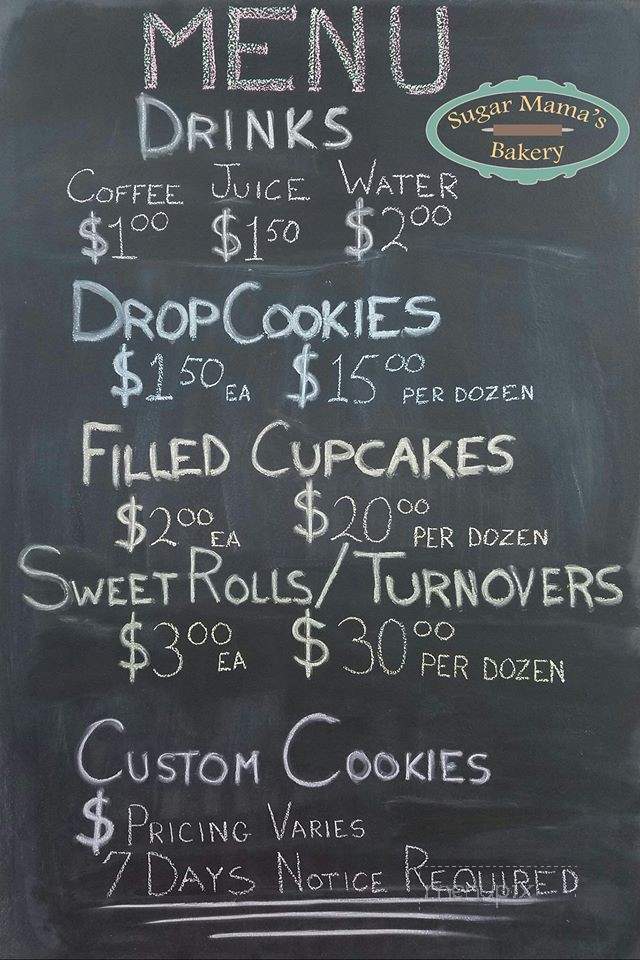 MENU
Sugar Mama's
Bakery
DRINKS
COFFEE JUICE WATER
$1.00 $1.50 $2.00
DROP COOKIES
$1.50 EA $15.00 PER DOZEN
FILLED CUPCAKES
$2.00 EA $20.00 PER DOZEN
SWEET ROLLS/TURNOVERS
$3.00 EA $30.00 PER DOZEN
CUSTOM COOKIES
$ PRICING VARIES
7 DAYS NOTICE REQUIRED
menupix